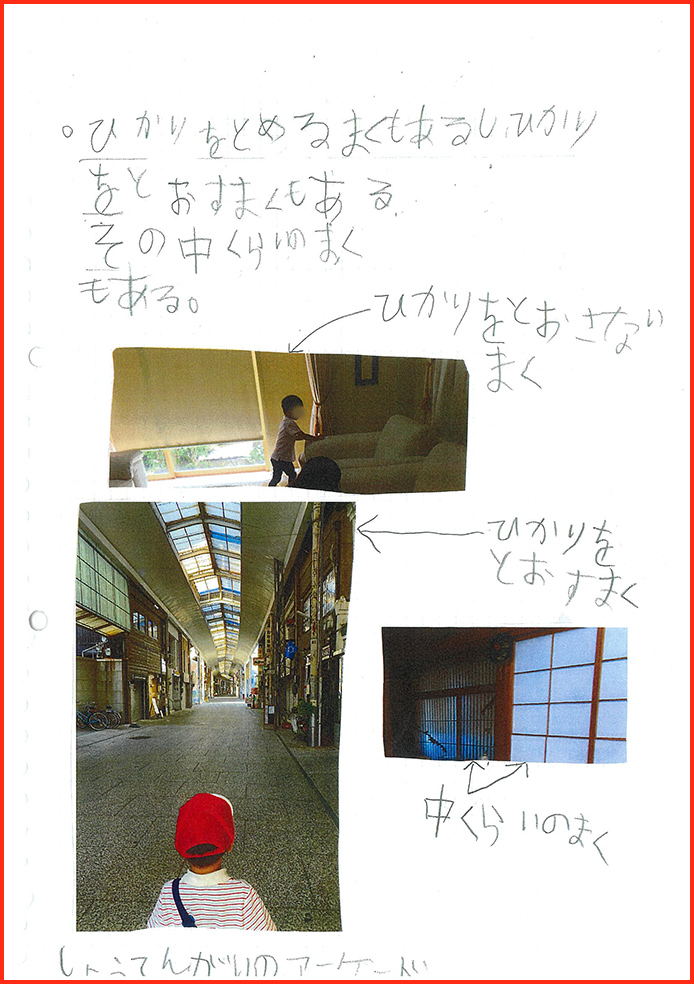 ○ひかりをとめるまくもあるし、ひかり
をとおすまくもある、
その中くらいのまく
もある。
ひかりをとおさない
まく
ひかりを
とおすまく
中くらいのまく
しょうてんがいのアーケード